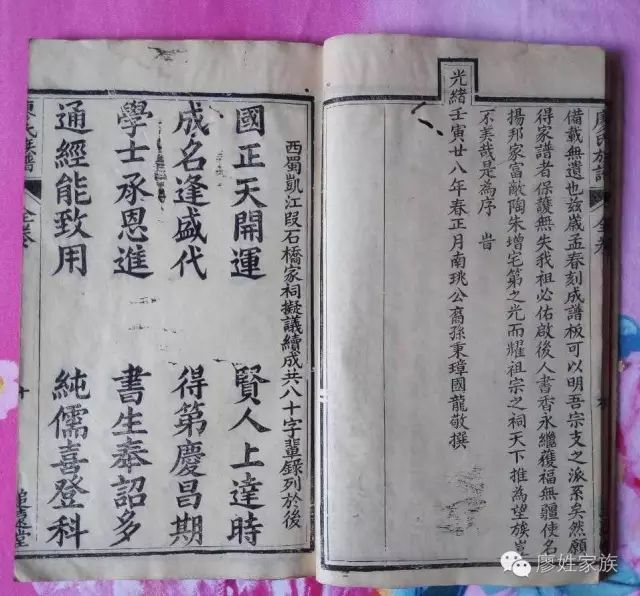 廖氏族譜
全卷
備載無遺也玆歲孟春刻成譜板可以明吾宗支之派系矣然願
得家譜者保護無失我祖必佑啟後人書香永繼獲福無疆使名
揚邦家富敵陶朱增宅第之光而耀祖宗之祠天下推為望族豈
不美哉是為序 旹
光緒壬寅廿八年春正月南珧公裔孫秉璋國龍敬撰
西蜀凱江段石橋家祠擬議續成共八十字輩錄列於後
國正天開運 賢人上達時
成名逢盛代 得第慶昌期
學士承恩進 書生奉詔多
通經能致用 純儒喜登科
廖氏族譜
全卷
十
追遠堂
廖姓家族